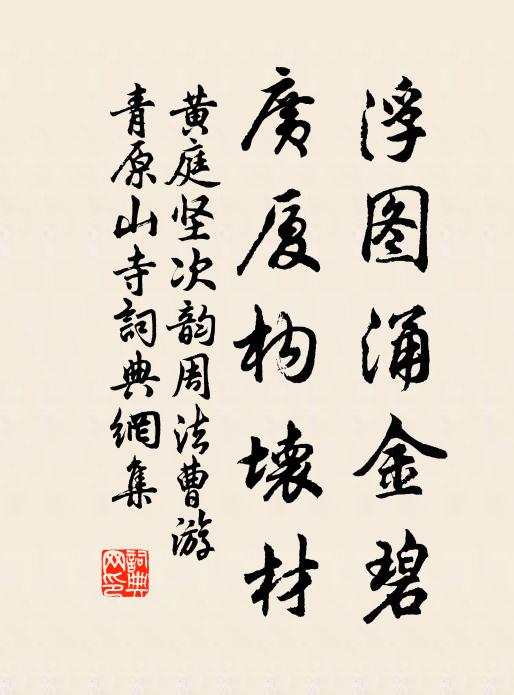 浮图涌金碧
广厦构坏材
黄庭坚次韵周法曹游
青原山寺詞典網集
詞典
网印